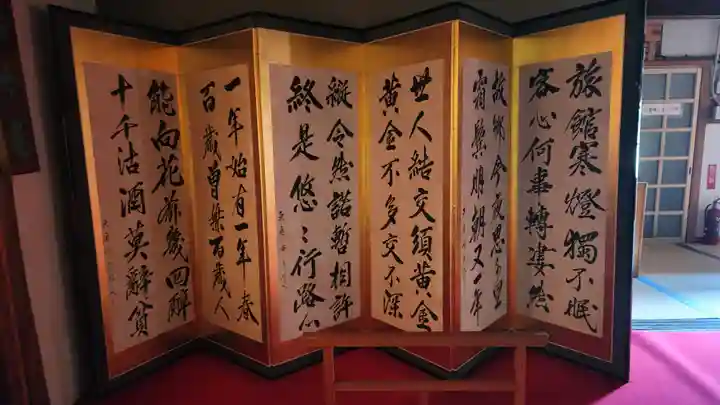 旅館寒燈獨不眠
客心何事轉凄然
故鄉今夜思千里
霜鬢明朝又一年
世人結交須黃金
黃金不多交不深
縱令然諾暫相許
終是悠々行路心
一年始有一年春
百歲曾無百歲人
能向花前幾回醉
十千沽酒莫辭貧